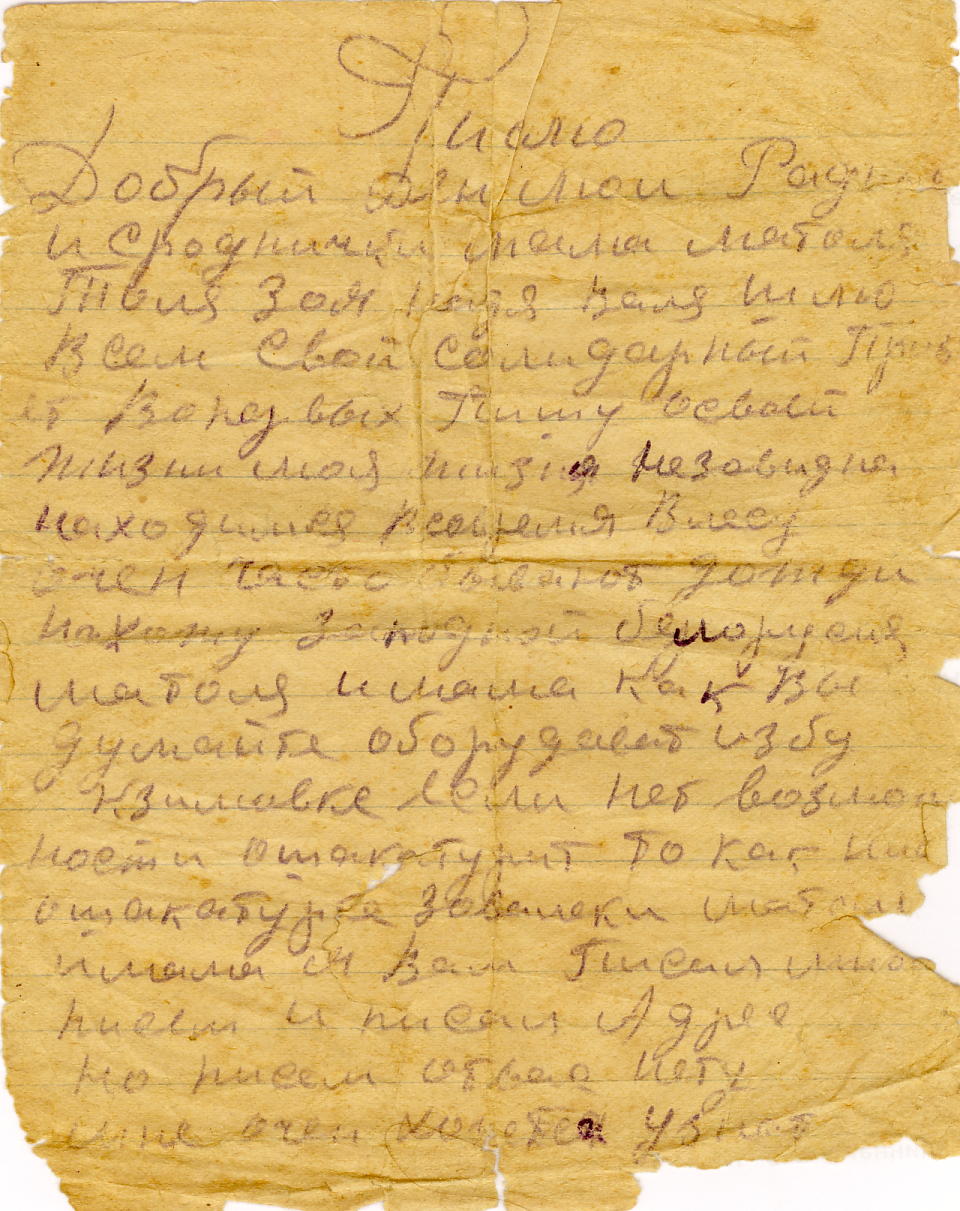 Писмо
Добрый ден мои Родные
и сроднички мама матоля
Толя Зоя Надя Валя шлю
Всем Свой солидарный Прив
ет Вопервых Пишу освой
жизни моя жизня незавидна
находимся Всевремя Влесу
очен часто бывают дожди
нахожу Западной белоруссия
матоля имама как Вы
думайте оборудават избу
кзимовке если нет возмож
ности ошакатурит то как ни
ошакатурке матоля
имама я Вам Писал мно
писем и писал Адрес
но писем ответа нету
мне очен хочется узнат